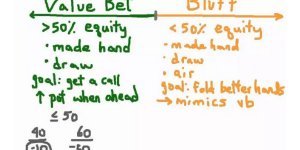 Value Bet
Bluff
>50% equity
• made hand
• draw
goal: get a call
↑ pot when ahead
< 50% equity
• made hand
• draw
• air
goal: fold better hands
→ mimics vb
≤ 50
40
60
-10
-50